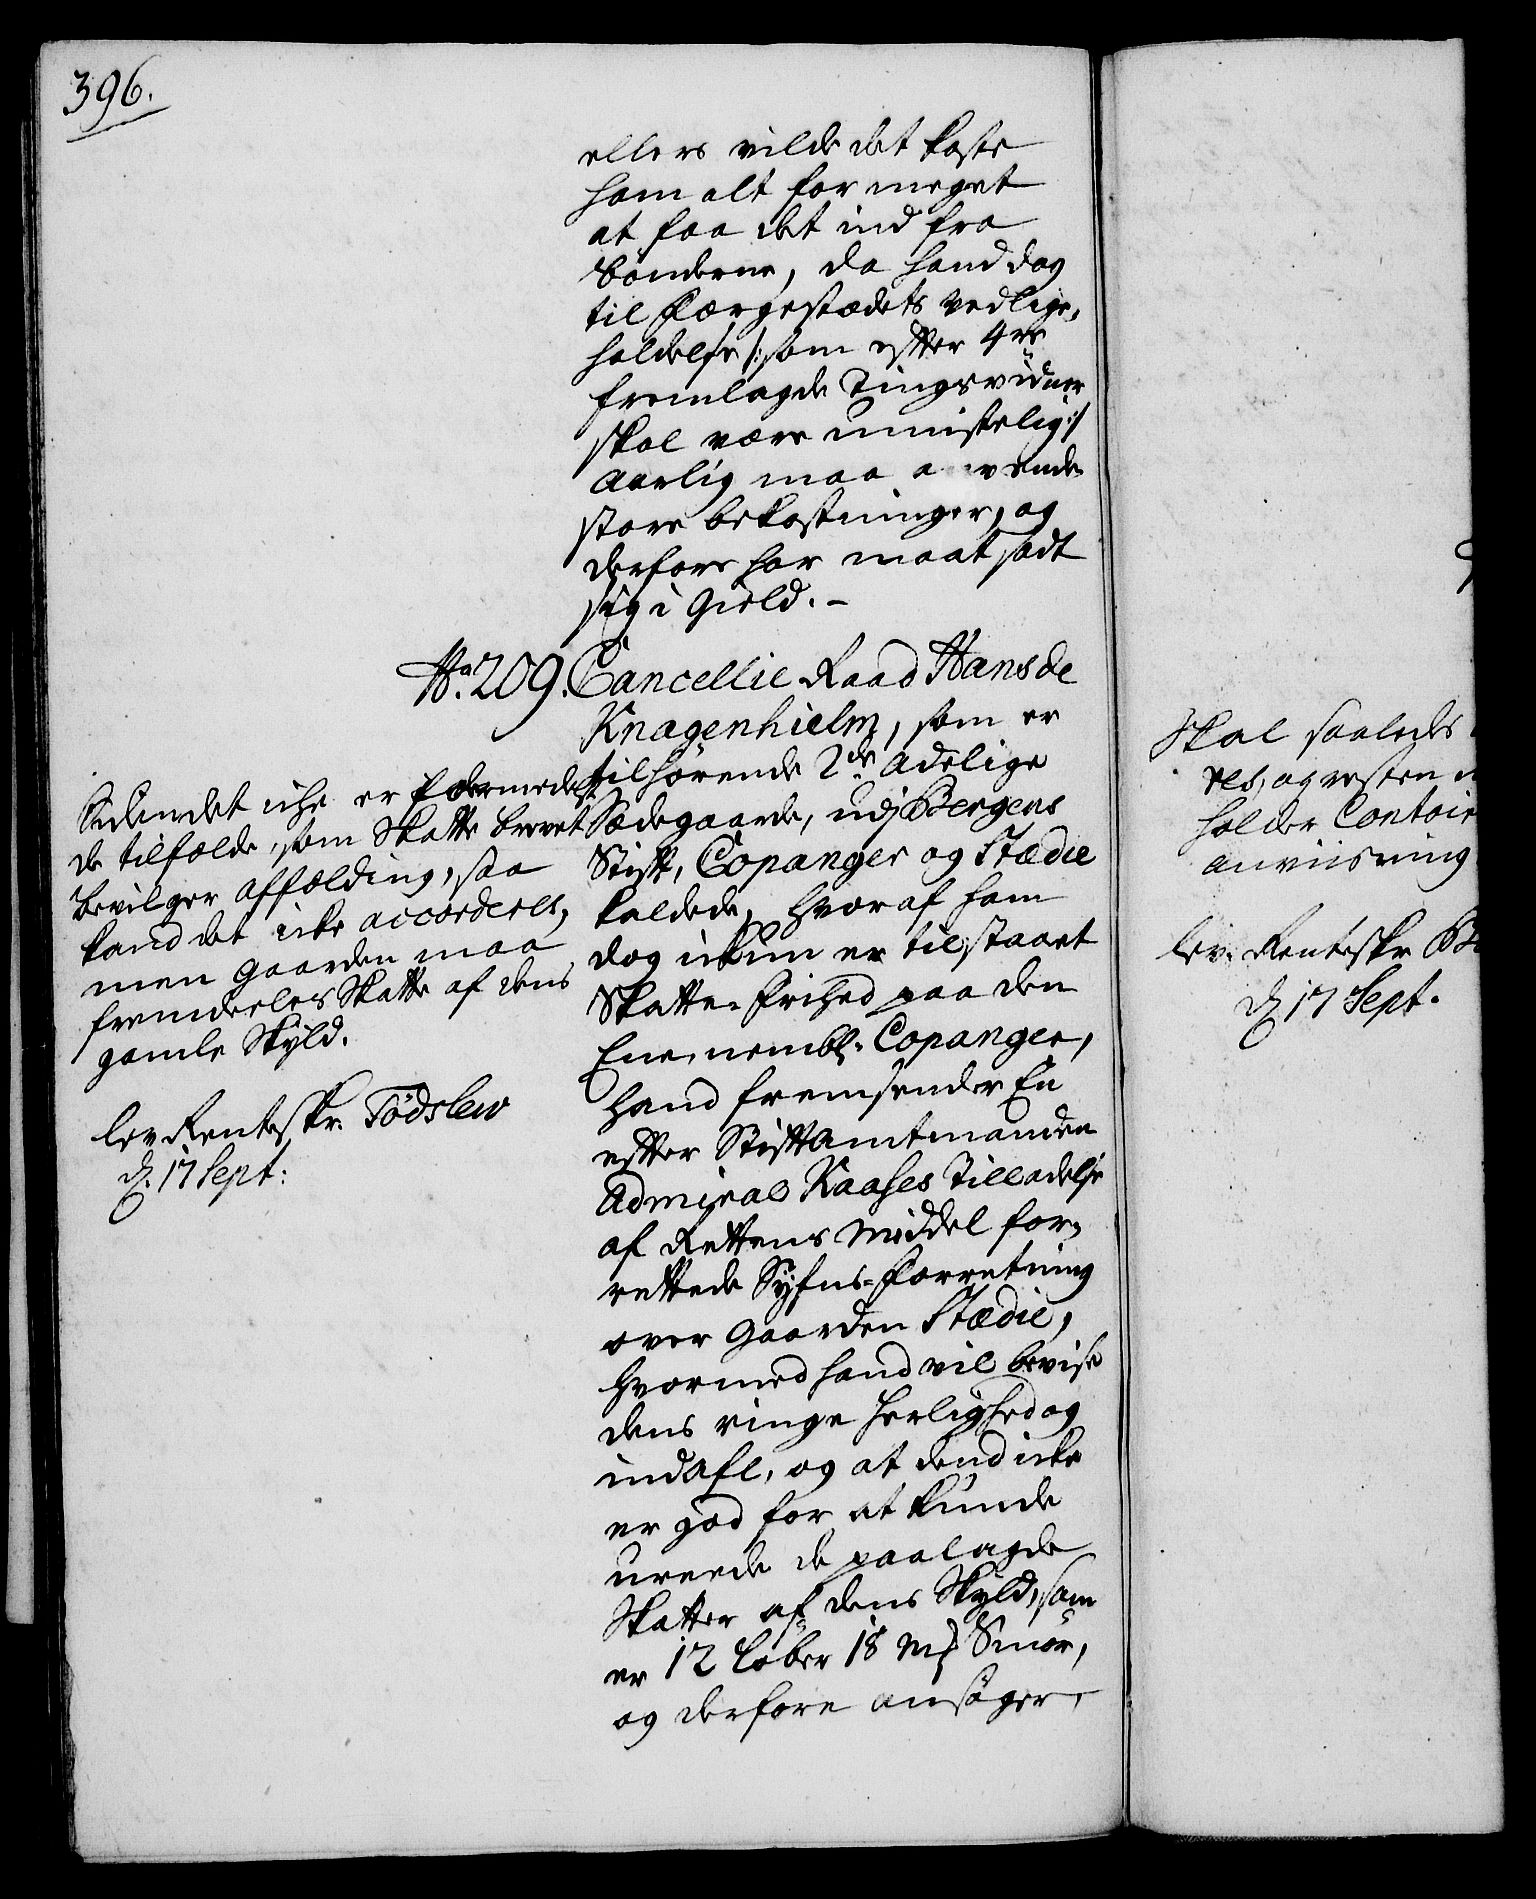 396.
ellers vilde det koste
ham alt for meget
at faa det ind fra
bönderne, da hand dog
til Færgestædets vedlige,
holdelse /: som efter 4re
fremlagde Tingsvidner
skal være umistelig :/
aarlig maa anvende
store bekostninger, og
derfore har maat sadt
sig i Gield. –
No. 209. Cancellie Raad Hans de
Knagenhielm, som er
tilhörende 2de adelige
Sædegaarde, udj Bergens
Stift, Copanger og Stædie
kaldede, hvoraf ham
dog ickun er tilstaaet
Skatte-frihed paa den
Ene, nembl. Copanger,
hand fremsender En
efter Stiftamtmanden
Admiral Kaases Tilladelse
af Rettens Middel for-
rettede Syfns-Forretning
over gaarden Stædie,
hvormed hand vil bevise
dens ringe herlighed og
indafl, og at dend icke
er god for at kunde
ureede de paalagde
Skatter af dens Skyld, som
er 12 Løber 18 mrk Smör,
og derfore ansöger,
Siden det iche er formedelst
de tilfælde, som Skatte brevet
bevilger affælding, saa
kand det icke accorderes,
men gaarden maa
fremdeeles Skatte af dens
gamle Skyld.
lev. Renteskr. Tödslew
d. 17 Sept:
Skal saaledes
res, og resten
holder Contoir
anviisning
lev. Renteskr
d. 17 Sept.